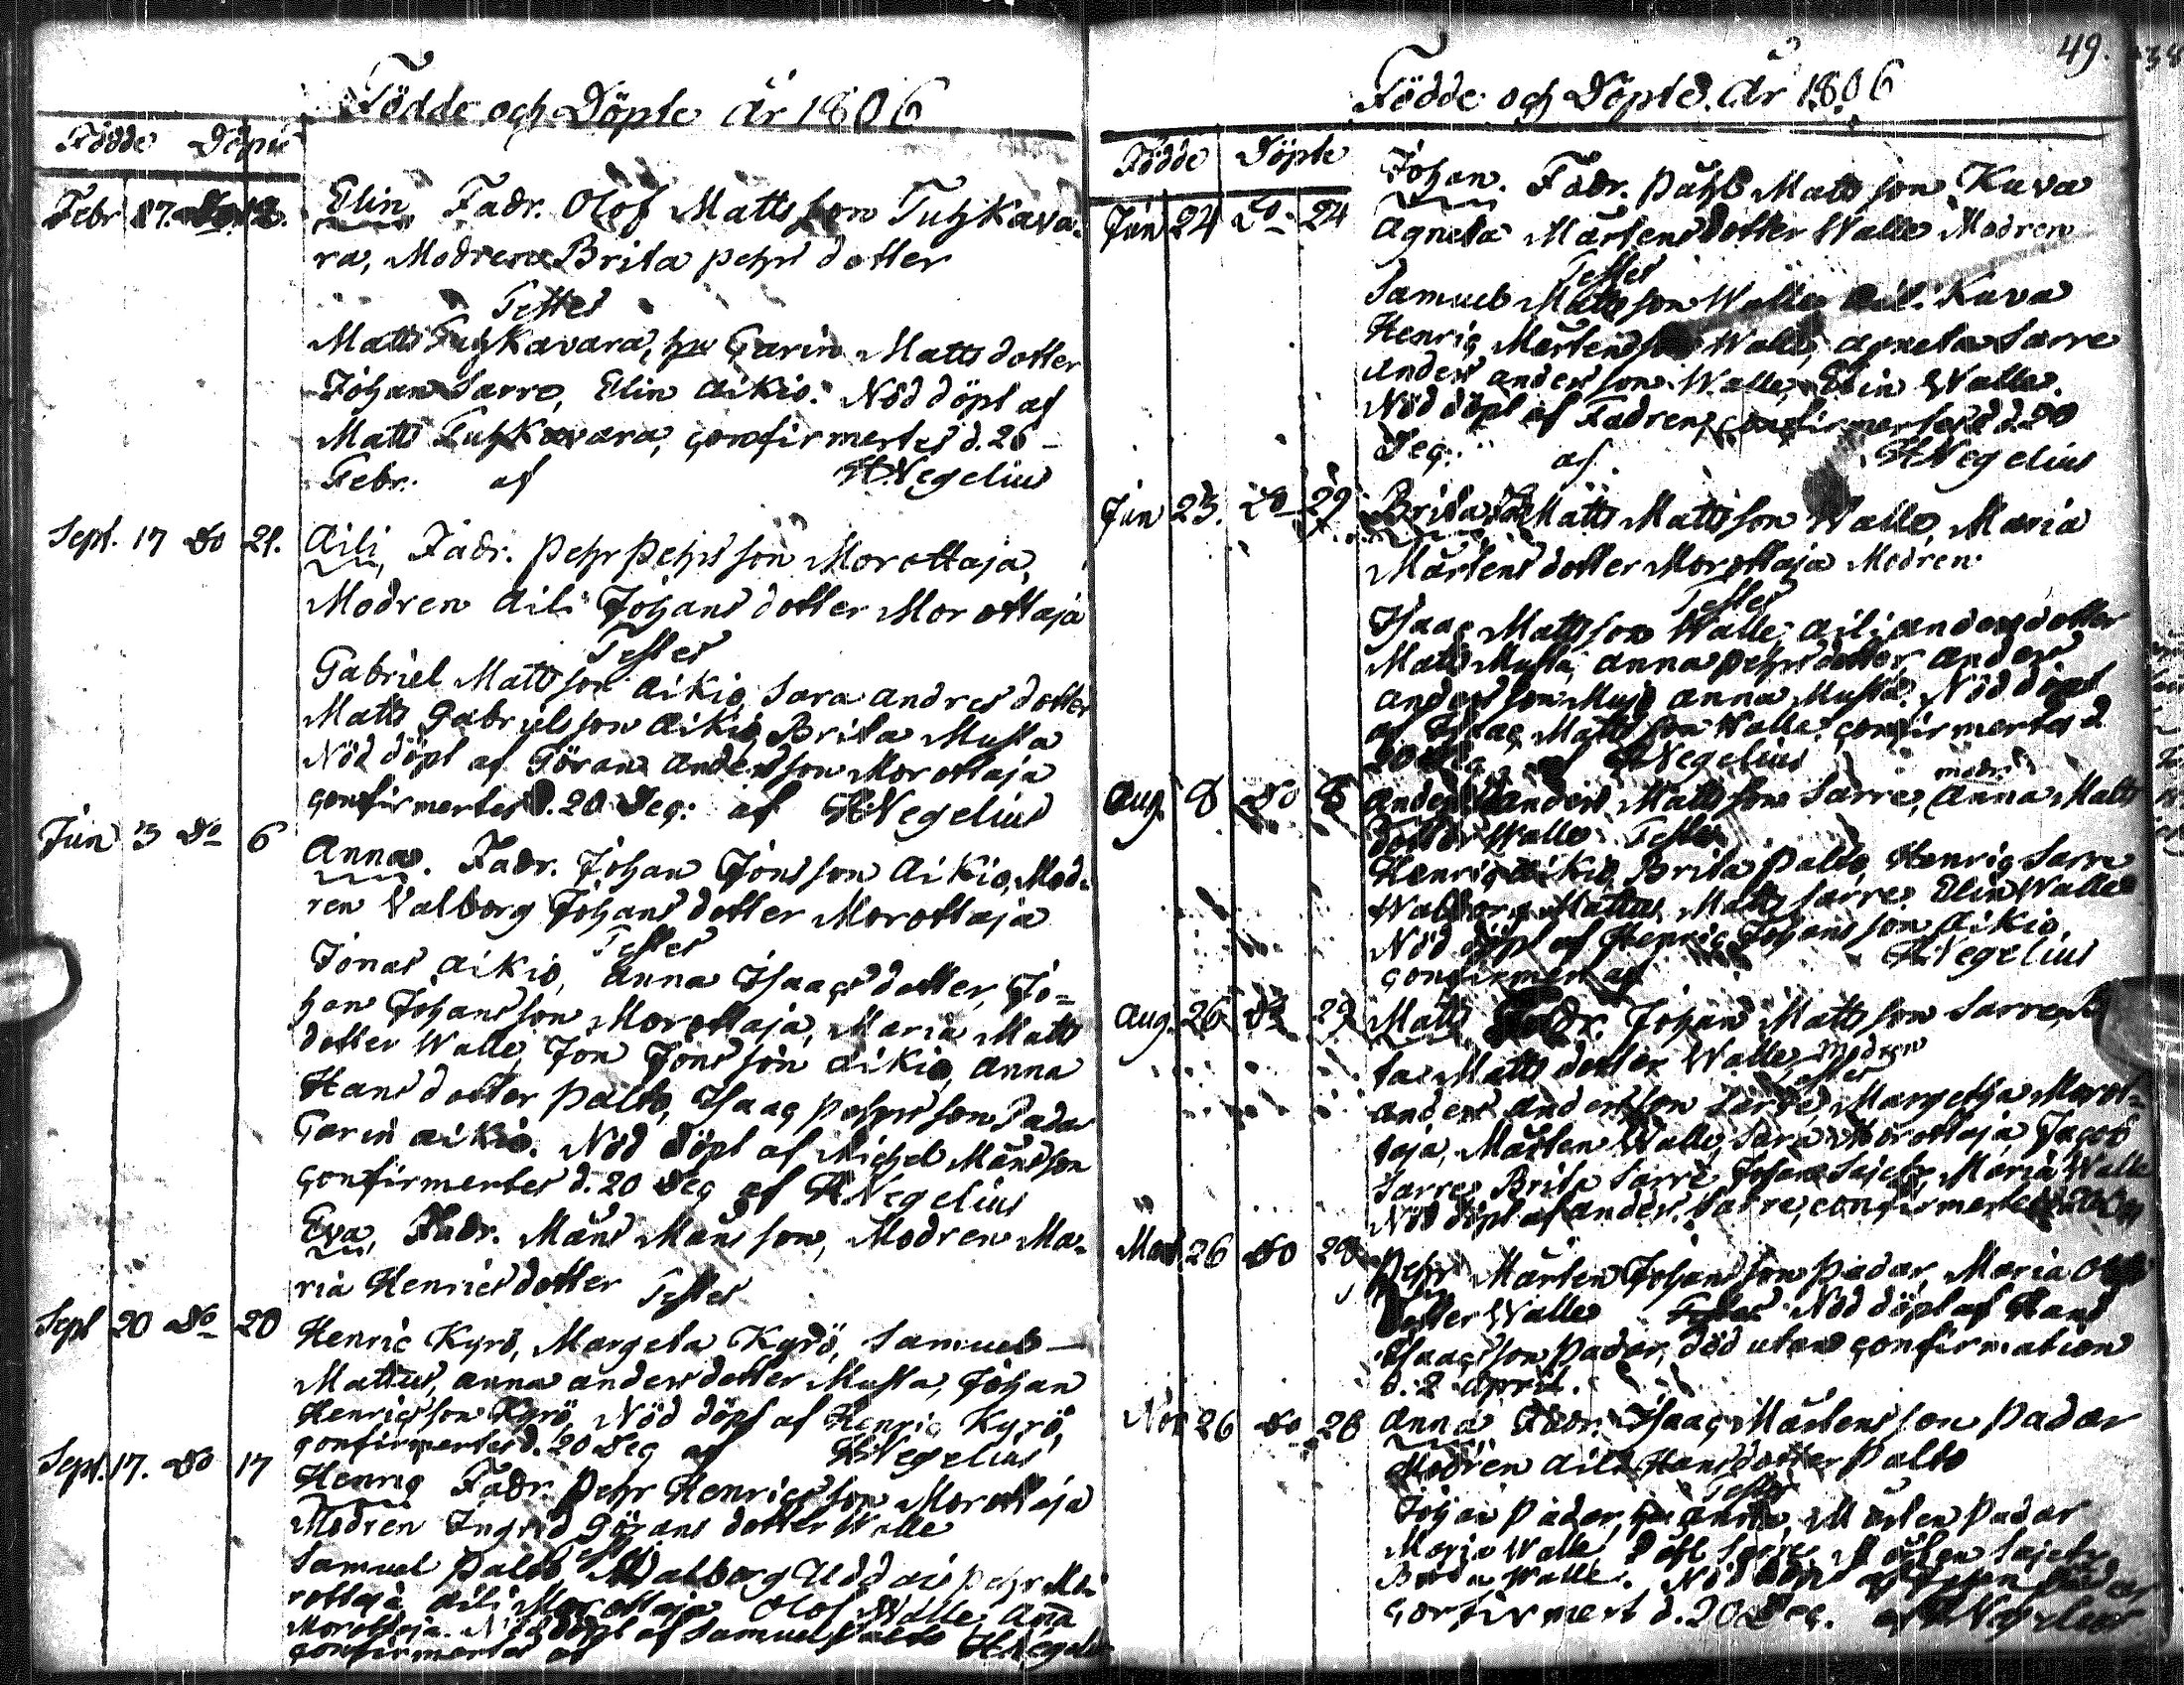 Födde och Döpte År 1806
Födde Döpte
Febr 17. Do
Elin Fadr. Olof Mattsson Tuhkava-
ra, Modren Brita Pehrs dotter
Testes
Matts Tuhkavara, hu Carin Matts dotter
Johan Sarre, Elin Aikio. Nöd döpt af
Matts Tuhkavara, confirmertes d. 26
Febr. af HWegelius
Sept. 17 Do 21.
Aili, Fadr. Pehr Pehrsson Morottaja,
Modren Aili Johans dotter Morottaja
Testes
Gabriel Mattsson Aikio, Sara Andres dotter
Matts Gabrielsson Aikio, Brita Musta
Nöd döpt af Göran Andersson Morottaja
confirmertes d. 20 Dec: af HWegelius
Jun 3 Do 6
Anna. Fadr. Johan Jonsson Aikio, Mod-
ren Valborg Johans dotter Morottaja
Testes
Jonas Aikio, Anna Isaacs dotter, Jo=
han Johansson Morottaja, Maria Matts
dotter Walle, Jon Jonsson Aikio, Anna
Hans dotter Palto, Isaac Pehrsson Padar
Carin Aikio. Nöd döpt af Michel Månsson
confirmertes d. 20 Dec af HWegelius
Eva, Fadr. Måns Månsson, Modren Ma-
ria Henricsdotter Testes
Sept 20 Do 20
Henric Kyrö, Margeta Kyrö, Samuel
Mattus, Anna Anders dotter Musta, Johan
Henricsson Kyrö, Nöd döpt af Henric Kyrö,
confirmertes d. 20 Dec af HWegelius
Sept. 17. Do 17
Henric Fadr. Pehr Henricsson Morottaja
Modren Ingrid Görans dotter Walle
Testes
Samuel Palto, Walborg Pehr Mo-
rottaja Aili Morottaja Olof Walle Anna
Morottaja. Nöd döpt af Samuel Palto
confirmertes af HWegelius
49.
Födde och Döpte År 1806
Födde Döpte
Jun 24 Do 24
Johan. Fadr. Påhl Mattsson Kuva
Agneta Mårtensdotter Walle Modren
Testes
Samuel Mattsson Walle Kuva
Henric Mårtensson Walle, Agneta Sarre
Anders Andersson Walle, Elin Walle.
Nöd döpt af Fadren, confirmertes d. 20
Dec: af HWegelius
Jun 23. Do 29
Brita, Matts Mattsson Walle, Maria
Mårtens dotter Morottaja Modren
Testes
Isaac Mattsson Walle, Aili Andersdotter
Matts Musta, Anna Pehrsdotter, Anders
Andersson Anna Musta. Nöd döpt
af Isaac Mattsson Walle, confirmertes d
af HWegelius
Aug. 8 Do 8
Anders Anders Mattsson Sarre, modr. Anna Matts
dotter Walle. Testes
Henric Aikio, Brita Palto, Henric Sarre
Walborg Mattus, Matts Sarre, Elin Walle
Nöd döpt af Henric Johansson Aikio.
confirmert af HWegelius
Aug. 26 Do 29
Matts Fadr. Johan Mattsson Sarre,
ta Matts dotter Walle Modren
Testes
Anders Andersson Sarre, Margetha Morot=
taja, Mårten Walle, Sara Morottaja Jacob
Sarre, Brita Sarre, Johan Sajets, Maria Walle
Nöd döpt af Anders Sarre, confirmertes
26 Do 28
Pehr Mårten Johansson Padar, Maria
dotter Walle Nöd döpt af Hans
Isaacsson Padar, död utan confirmation
d. 2 April.
Nov 26 Do 28
Anna Fadr. Isaac Mårtensson Padar
Modren Aili Hansdotter Palto
Testes
Johan Padar, hu Anna, Mårten Padar
Maria Walle, Påhl Sarre, Mårten Sajets
Walle. Nöd döpt af
confirmert d. 20 Dec. af HWegelius